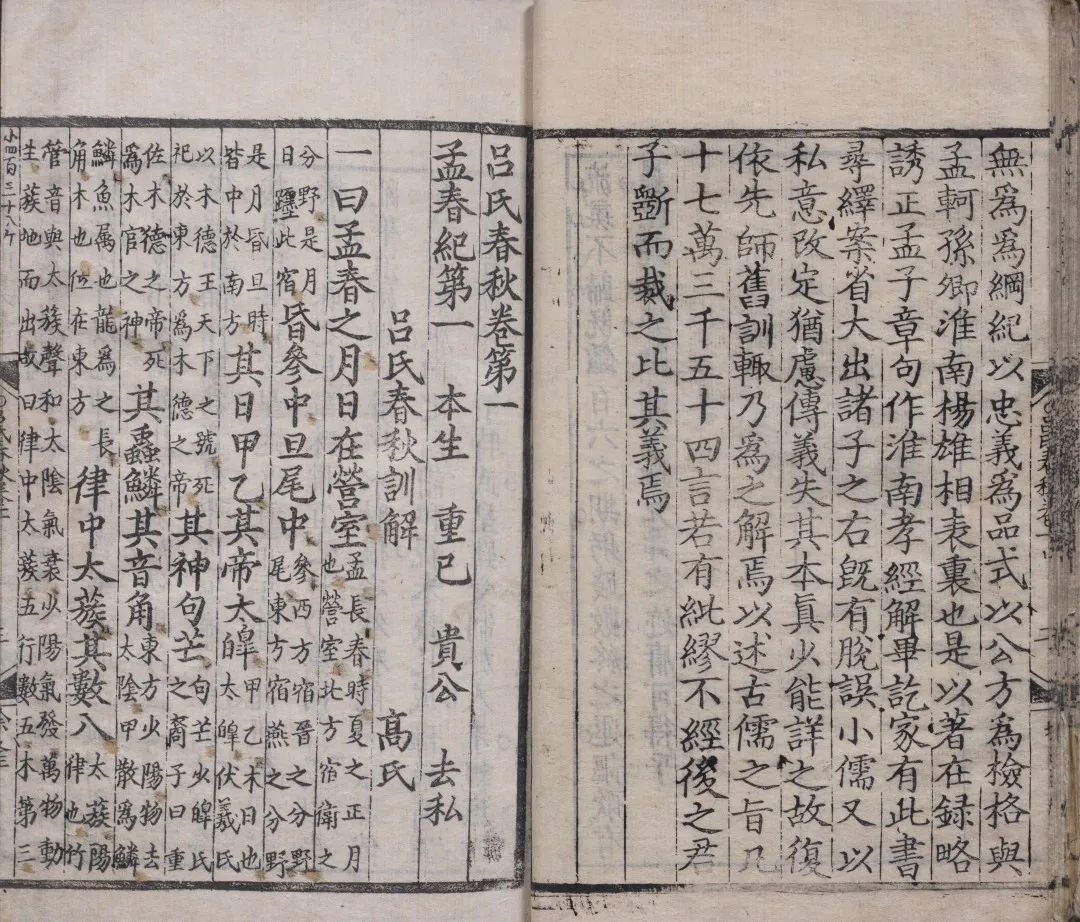 無爲爲綱紀以忠義爲品式以公方爲檢格與
孟軻孫卿淮南楊雄相表裏也是以著在録略
誘正孟子章句作淮南孝經解畢訖家有此書
尋繹案省大出諸子之右旣有脫誤小儒又以
私意改定猶慮傳義失其本眞少能詳之故復
依先師舊訓輒乃爲之解焉以述古儒之旨凡
十七萬三千五十四言若有紕繆不經後之君
子斷而裁之比其義焉
呂氏春秋卷第一
孟春紀第一 本生 重己 貴公 去私
呂氏春秋訓解 高氏
一曰孟春之月日在營室孟長春時夏之正月也營室北方宿衛之
分野是月日躔此宿昏參中旦尾中參西方宿晉之分野尾東方宿燕之分野
是月昏旦時皆中於南方其日甲乙其帝太皥甲乙木日也太皥伏羲氏
以木德王天下之號死祀於東方爲木德之帝其神句芒句芒少皥氏之裔子曰重
佐木德之帝死爲木官之神其蟲鱗其音角東方少陽物去太陰甲散爲鱗
鱗魚属也龍爲之長角木也位在東方律中太蔟其數八太蔟陽律也竹
管音與太蔟聲和太陰氣衰少陽氣發萬物動生蔟地而出故曰律中太蔟五行數五木第三